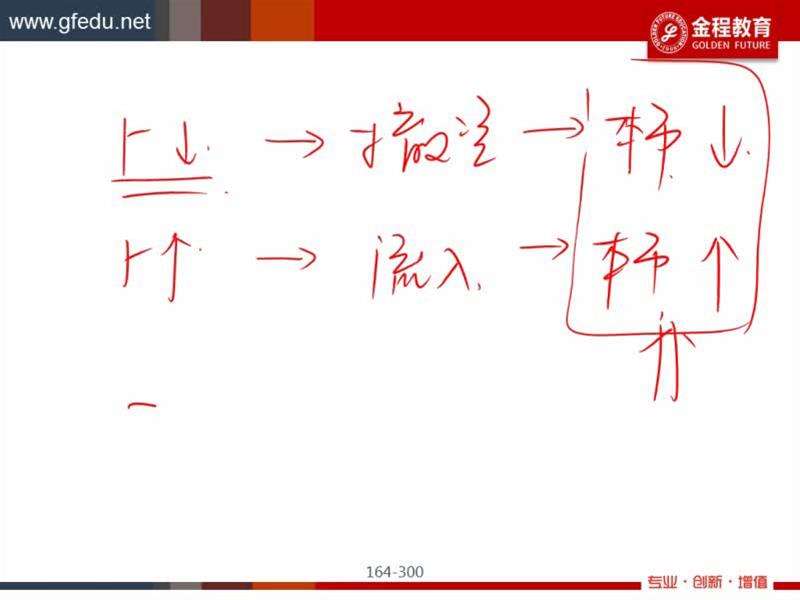 www.gfedu.net
金程教育
GOLDEN FUTURE
r↓ → 撤资 → 本币↓
r↑ → 流入 → 本币↑
164-300
专业·创新·增值